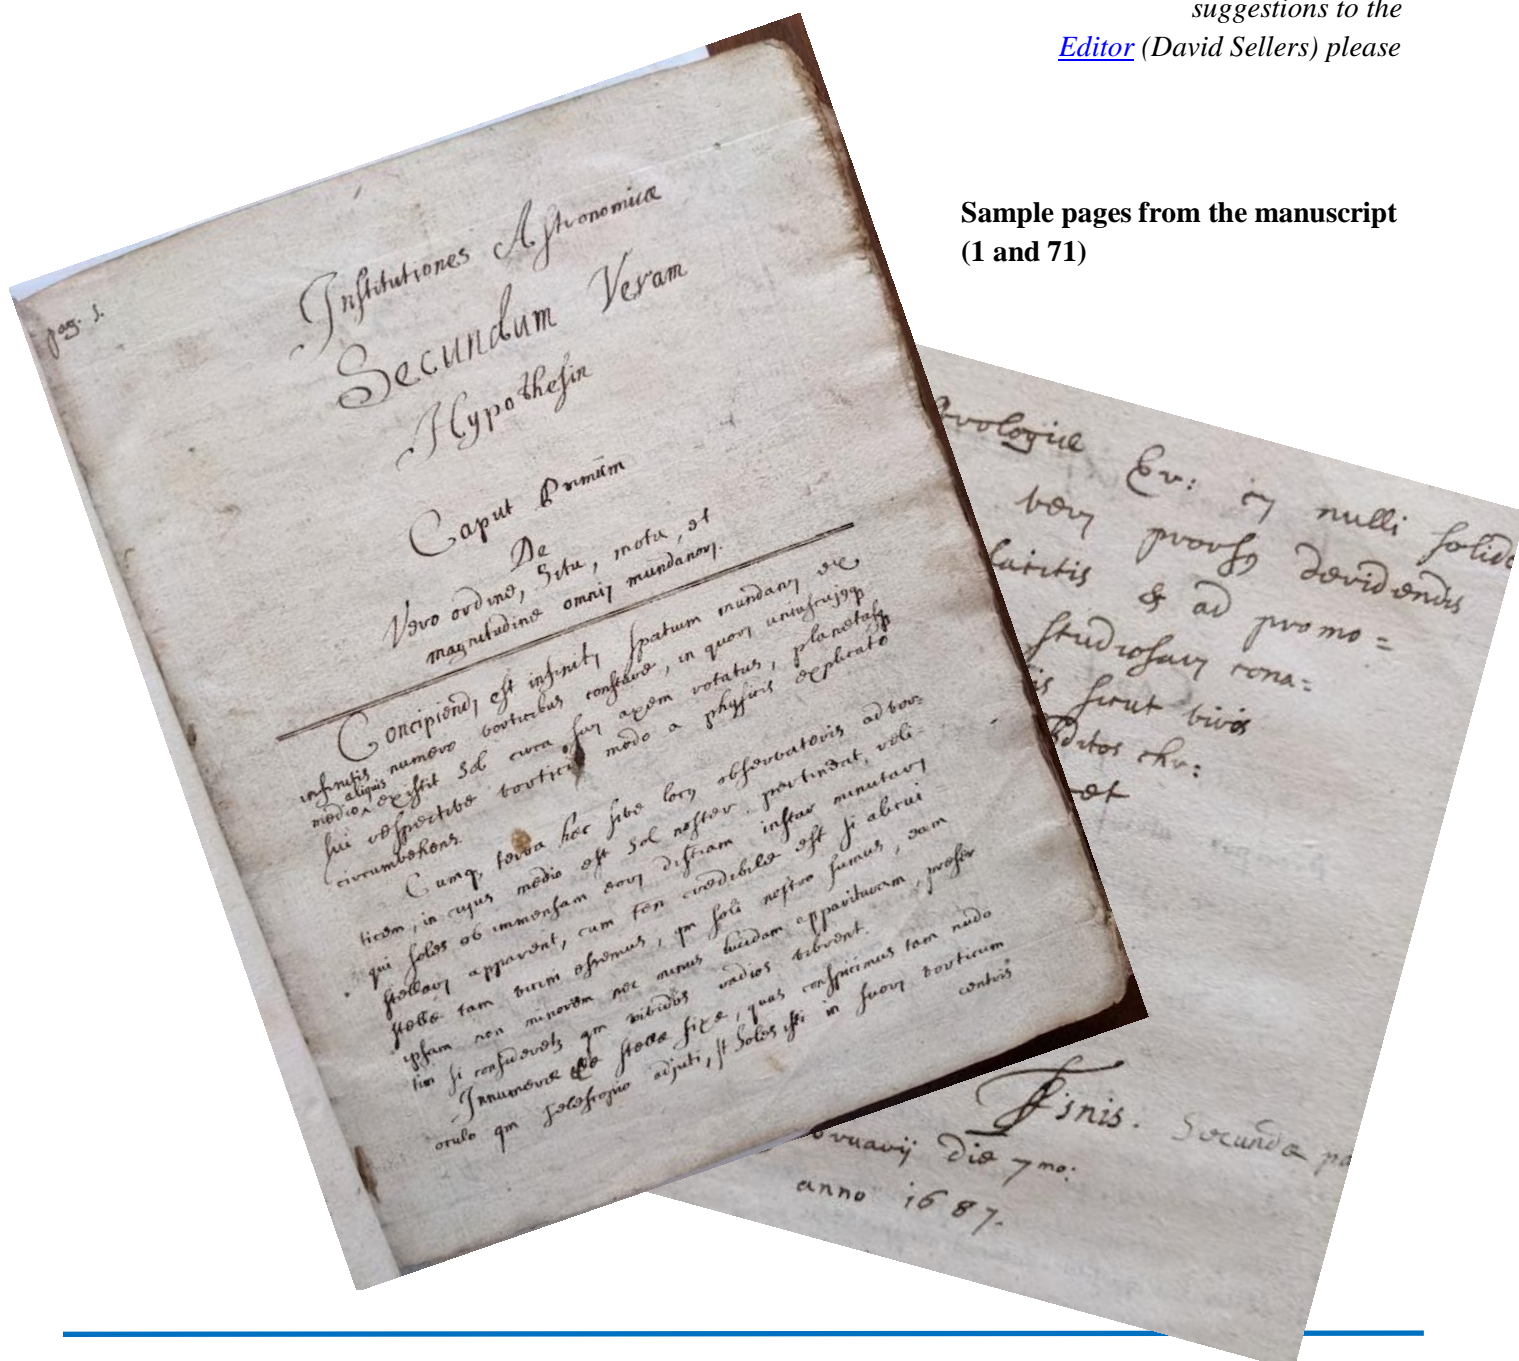 suggestions to the
Editor (David Sellers) please
Sample pages from the manuscript
(1 and 71)
pag. 1.
Institutiones Astronomicæ
Secundum Veram
Hypothesin
Caput Primum
De
Vero ordine, Situ, motu, et
magnitudine omniū mundanorū.
Concipiendū est infinitū spatium mundanū ex
infinitis numero vorticibus constare, in quorū uniuscujusqꝫ
medio aliquis existit Sol circa suū axem rotatus, planetasqꝫ
sui respective vorticis modo a physicis explicato
circumvehens.
Cumqꝫ terra hæc sive locꝰ observatoris ad vor-
ticem, in cujus medio est Sol noster pertineat, reli-
qui soles ob immensam eorū distiam instar minutarū
stellarū apparent, cum tñ credibile est si alicui
stellæ tam vicini essemus, qm soli nostro sumus, eam
ipsam non minorem nec minus lucidam apparituram, præser
tim si consideretʳ qm vividos radios vibrent.
Innumeræ stellæ fixæ, quas conspicimus tam nudo
oculo qm telescopio adjuti, st Soles isti in suorū vorticum
centris
nulli solido
verū prorsꝰ dividendis
& ad promo=
studiosarū cona=
sicut vivis
chr:
et
Finis. Secundæ
die 7mo:
anno 1687.